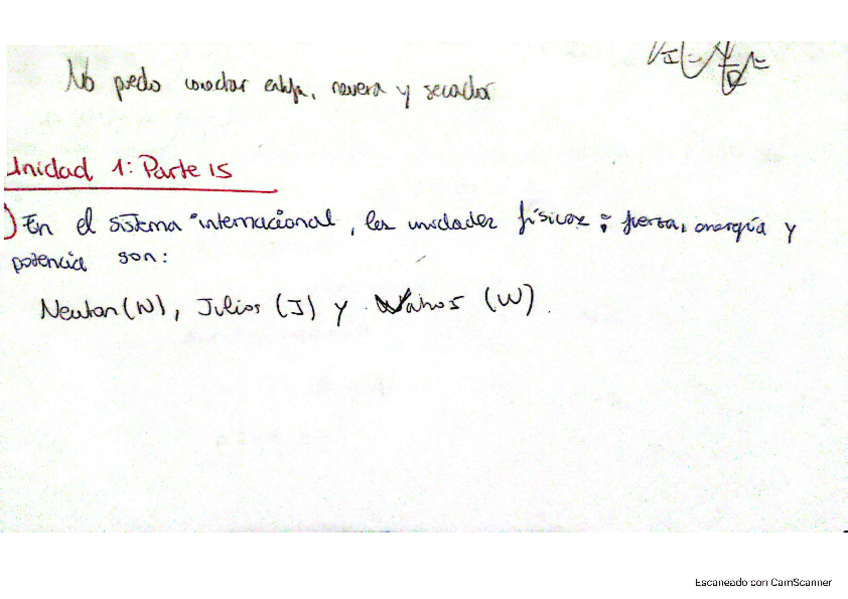 No puedo conectar estufa, nevera y secador
Unidad 1: Parte 15
) En el sistema internacional, las unidades físicas: fuerza, energía y
potencia son:
Newton (N), Julios (J) y Watios (W).
Escaneado con CamScanner